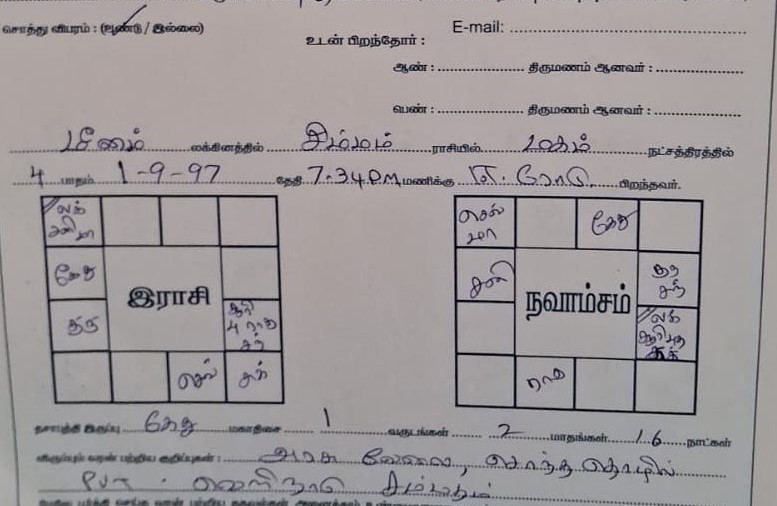 சொத்து விபரம் : (ஆண்டு / இல்லை)
E-mail:
உடன் பிறந்தோர் :
ஆண் : திருமணம் ஆனவர் :
பெண் : திருமணம் ஆனவர் :
மீனம் லக்கினத்தில் சிம்மம் ராசியில் மகம் நட்சத்திரத்தில்
4 பாதம் 1-9-97 தேதி 7-34 P.M, மணிக்கு ஈரோடு பிறந்தவர்.
லக்
சனி மா
கேது
குரு
இராசி
சூரி
4 ராகு
சந்
செவ் சுக்
செவ்
மா
கேது
சனி
குரு
சந்
நவாம்சம்
லக்
சூரி புத
சுக்
ராகு
கேது மகாதிசை 1 வருடங்கள் 2 மாதங்கள் 16 நாட்கள்
விரும்பும் வரன் பற்றிய குறிப்புகள் : அரசு வேலை, சொந்த தொழில்
Pvt வெளிநாடு சம்மதம்